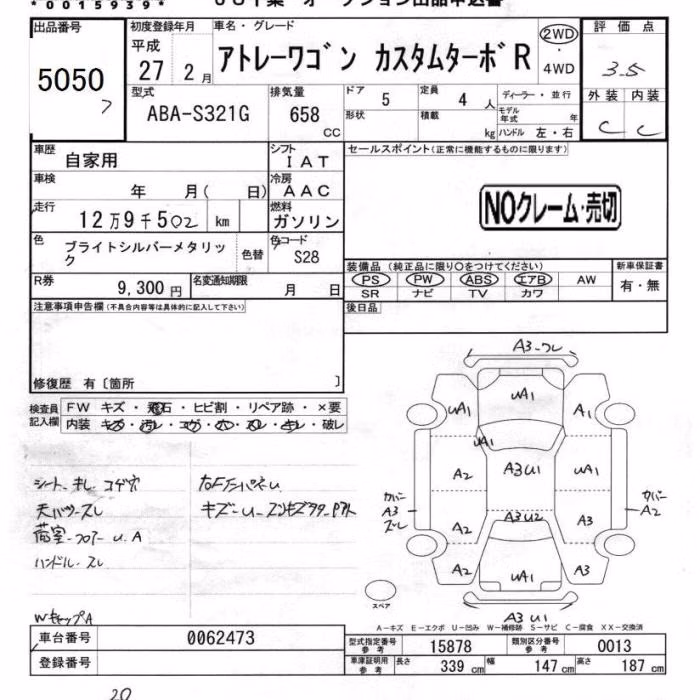 *0015939*
出品番号
5050
7
初度登録年月
平成
27 2月
車名・グレード
アトレーワゴン カスタムターボR
2WD
・
4WD
評価点
3.5
外装 内装
C C
型式
ABA-S321G
排気量
658
CC
ドア
5
定員
4人
形状
積載
kg
ディーラー・並行
モデル年式 年
ハンドル 左・右
車歴
自家用
シフト
IAT
車検
年 月( 日)
冷房
AAC
走行
12万9千502 km
燃料
ガソリン
色
ブライトシルバーメタリック
色替
色コード
S28
R券
9,300円
名変通知期限
月 日
セールスポイント(正常に機能するものに限ります)
NOクレーム・売切
装備品 (純正品に限り○をつけてください)
PS PW ABS エアB AW
SR ナビ TV カワ
新車保証書
有・無
後日品
注意事項申告欄(不具合内容等は具体的に記入して下さい)
修復歴 有〔箇所 〕
検査員記入欄
FW キズ・飛石・ヒビ割・リペア跡・×要
内装 キズ・汚レ・コゲ・穴・スレ・キレ・破レ
シート キレ コゲ穴
天バリ-スレ
荷室-フロアー U.A
ハンドル-スレ
WキャップA
A3-ワレ
UA1
UA1
A1
UA1
A2
A3U1
UA1
カバー
A3
ズレ
カバー
A2
A2
A3U2
A3
A2
UA1
A3
スペア
A3U1
A-キズ E-エクボ U-凹み W-補修跡 S-サビ C-腐食 XX-交換済
車台番号
0062473
登録番号
型式指定番号
参考
15878
類別区分番号
参考
0013
車庫証明用
参考
長さ 339cm
幅 147cm
高さ 187cm
20